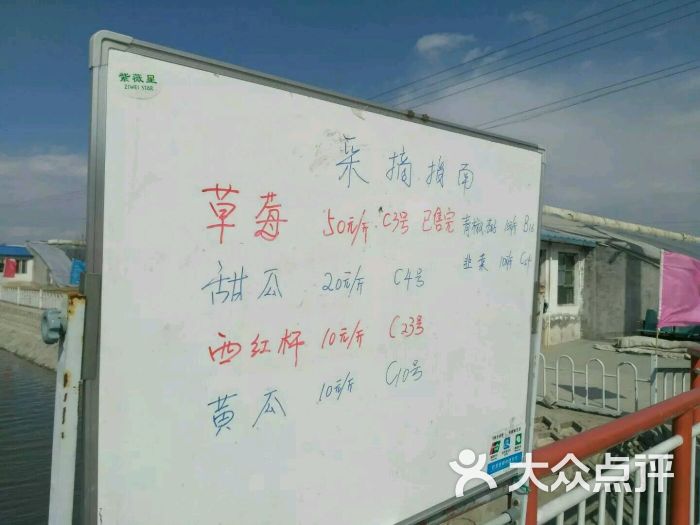 紫薇星
ZIWEI STAR
采摘指南
草莓 50元/斤 C3号 已售完
甜瓜 20元/斤 C4号
西红柿 10元/斤 C23号
黄瓜 10元/斤 C10号
青椒 10/斤
韭菜 10/斤
大众点评